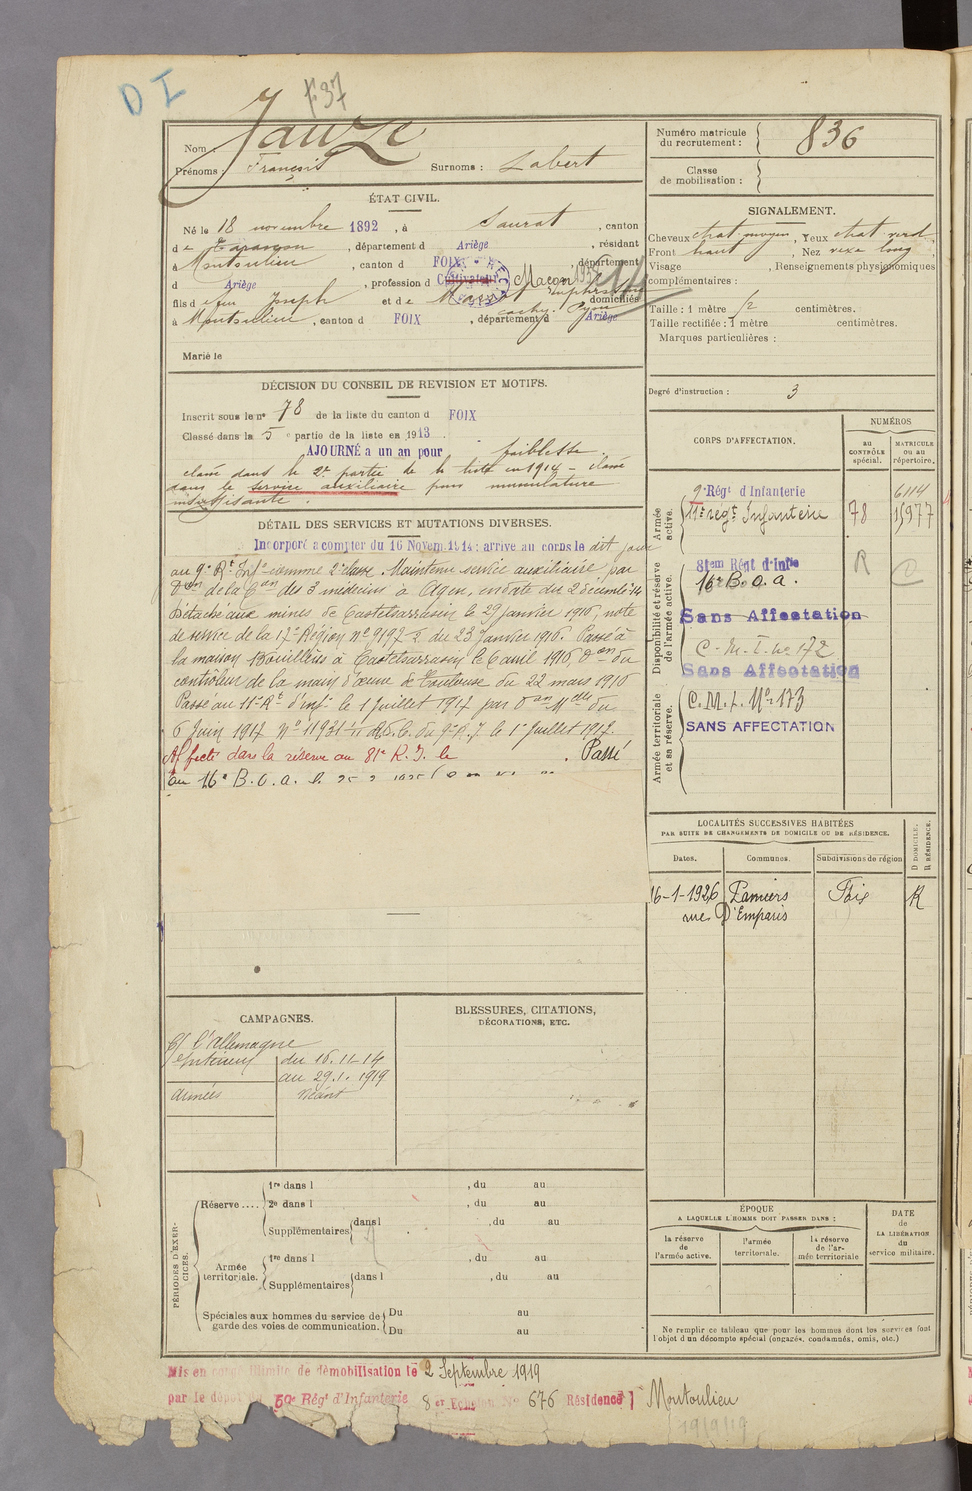 D I
F 37
Nom : Jauze
Prénoms : François Surnoms : Labert
ÉTAT CIVIL.
Né le 18 novembre 1892, à Saurat, canton
de Tarascon, département d Ariège, résidant
à Montoulieu, canton d FOIX, département
d Ariège, profession d Cultivateur Maçon
fils de feu Joseph et de domiciliés
à Montoulieu, canton d FOIX, département d Ariège
Marié le
DÉCISION DU CONSEIL DE REVISION ET MOTIFS.
Inscrit sous le n° 78 de la liste du canton d FOIX
Classé dans la 5e partie de la liste en 1913
AJOURNÉ à un an pour faiblesse.
classé dans la 2e partie de la liste en 1914 - classé
dans le service auxiliaire pour musculature
insuffisante.
DÉTAIL DES SERVICES ET MUTATIONS DIVERSES.
Incorporé à compter du 16 Novem. 1914 : arrivé au corps le dit jour
au 9e Rt Infie comme 2e classe. Maintenu service auxiliaire par
Don de la Con des 3 médecins à Agen, en date du 2 décembre 14
Détaché aux mines de Castelsarrasin le 29 Janvier 1916, note
de service de la 17e Région n° 9192 I du 23 Janvier 1916. Passé à
la maison Bouillères à Castelsarrasin le 6 avril 1916, Don du
contrôleur de la main d'œuvre de Toulouse du 22 mars 1916
Passé au 11e Rt d'Infie le 1 Juillet 1917 par Don Mlle du
6 Juin 1917 n° 11931 R.d.C. du 9e R.I. le 1er Juillet 1917.
Affecté dans la réserve au 81e R. I. le . Passé
au 16e B. O. a. le
CAMPAGNES.
C/ l'Allemagne
Intérieur du 16.11-14
au 29.1.1919
Armées Néant
BLESSURES, CITATIONS,
DÉCORATIONS, ETC.
PÉRIODES D'EXERCICES.
Réserve .... 1re dans l , du au
2e dans l , du au
Supplémentaires dans l , du au
Armée territoriale. 1re dans l , du au
Supplémentaires dans l , du au
Spéciales aux hommes du service de garde des voies de communication. Du au
Du au
Numéro matricule du recrutement : 836
Classe de mobilisation :
SIGNALEMENT.
Cheveux chat. moyen, Yeux chat. verd.
Front haut, Nez rexe long
Visage , Renseignements physionomiques
complémentaires :
Taille : 1 mètre 72 centimètres.
Taille rectifiée : 1 mètre centimètres.
Marques particulières :
Degré d'instruction : 3
CORPS D'AFFECTATION.
NUMÉROS
au CONTRÔLE spécial.
MATRICULE ou au répertoire.
Armée active.
9e Régt d'Infanterie 6114
11e régt Infanterie 78 15977
Disponibilité et réserve de l'armée active.
81em Régt d'Infie R C
16e B.o.a.
Sans Affectation
C. M. I. no 172
Sans Affectation
Armée territoriale et sa réserve.
C. M. I. No 173
SANS AFFECTATION
LOCALITÉS SUCCESSIVES HABITÉES
PAR SUITE DE CHANGEMENTS DE DOMICILE OU DE RÉSIDENCE.
Dates. Communes. Subdivisions de région D DOMICILE. R RÉSIDENCE.
16-1-1926 Pamiers Foix R
rue D'Emparis
ÉPOQUE
A LAQUELLE L'HOMME DOIT PASSER DANS :
la réserve de l'armée active.
l'armée territoriale.
la réserve de l'armée territoriale
DATE de LA LIBÉRATION du service militaire.
Ne remplir ce tableau que pour les hommes dont les services font
l'objet d'un décompte spécial (engagés, condamnés, omis, etc.)
Mis en congé illimité de démobilisation le 2 Septembre 1919
par le dépôt du 59e Régt d'Infanterie 8er Echelon No 676 Résidence Montoulieu
19/9/19